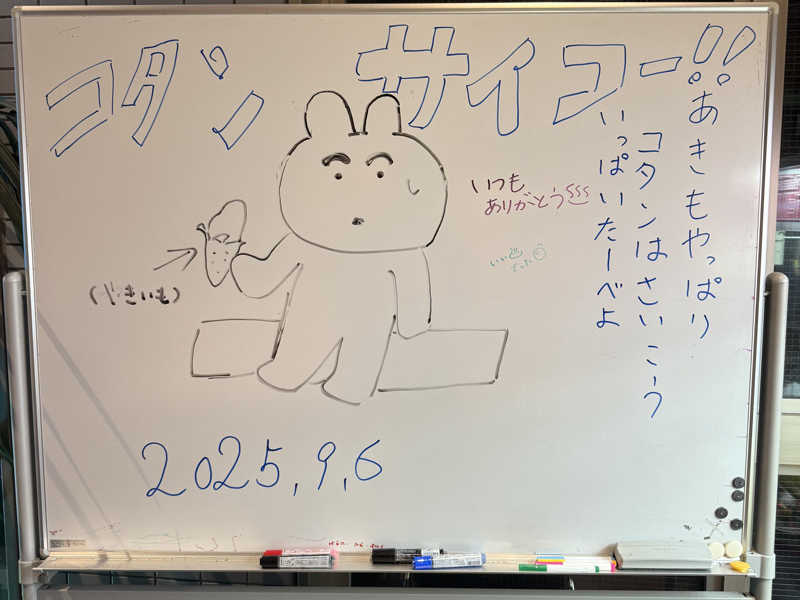 コタン サイコー!!
あきもやっぱり
コタンはさいこーう
いっぱいたーべよ
いつも
ありがとう
(やきいも)
2025.9.6